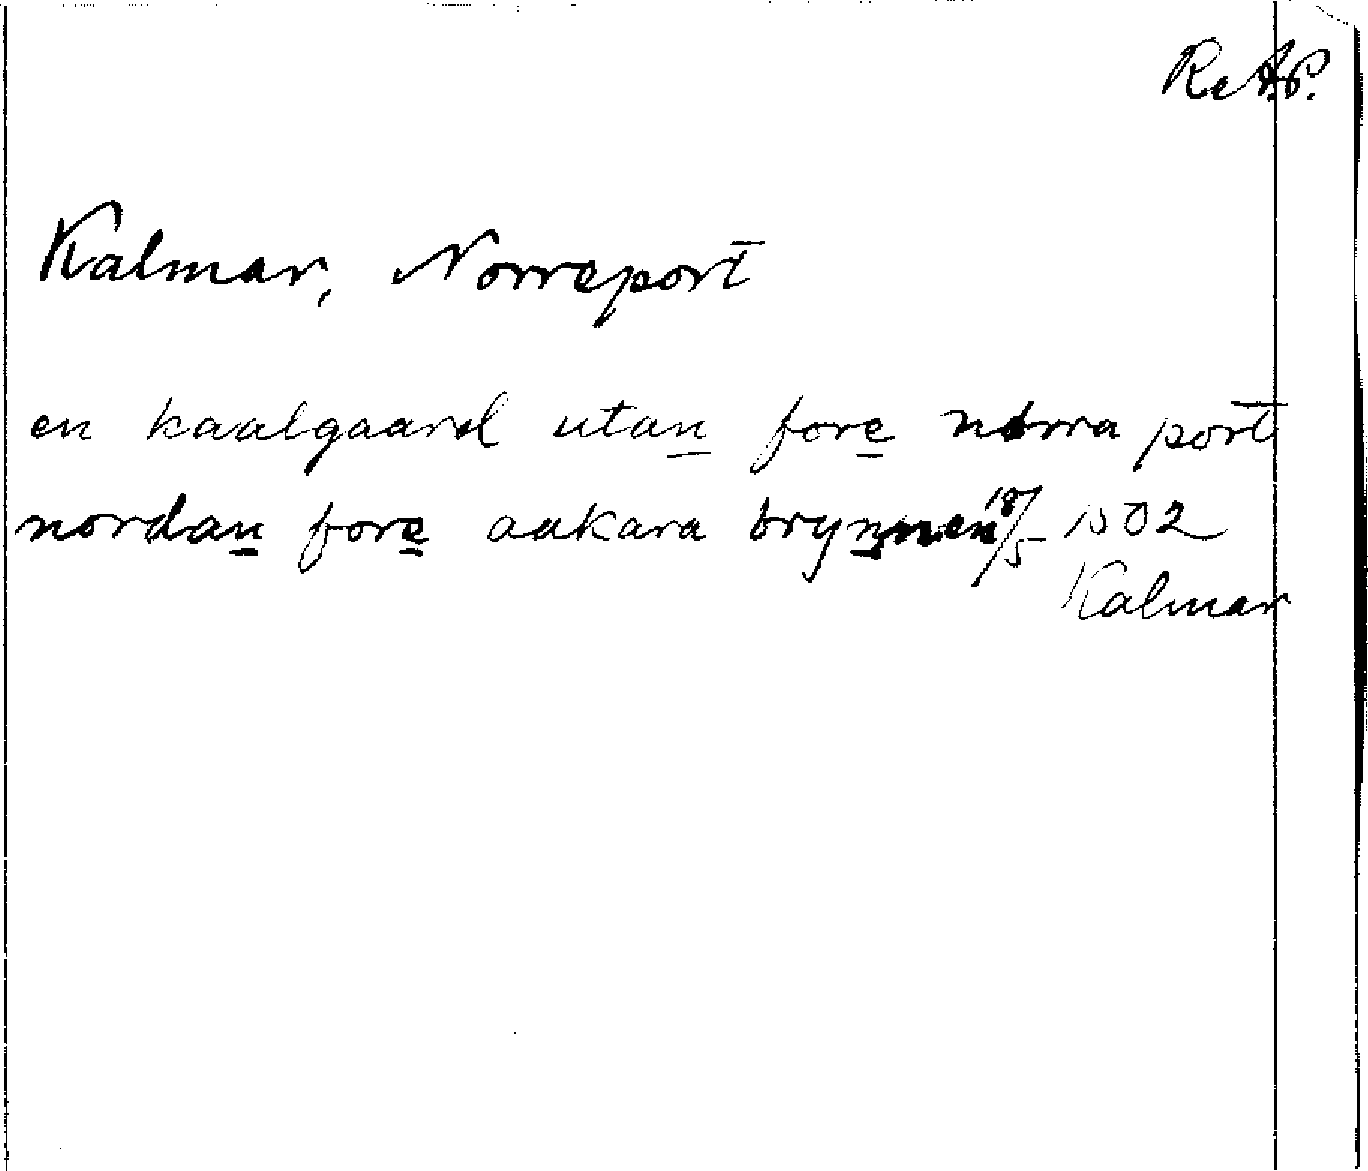 RAP.
Kalmar, Norreport
en kaalgaard utan fore norra port
nordan fore aakara brynnen 18/5 1502
Kalmar